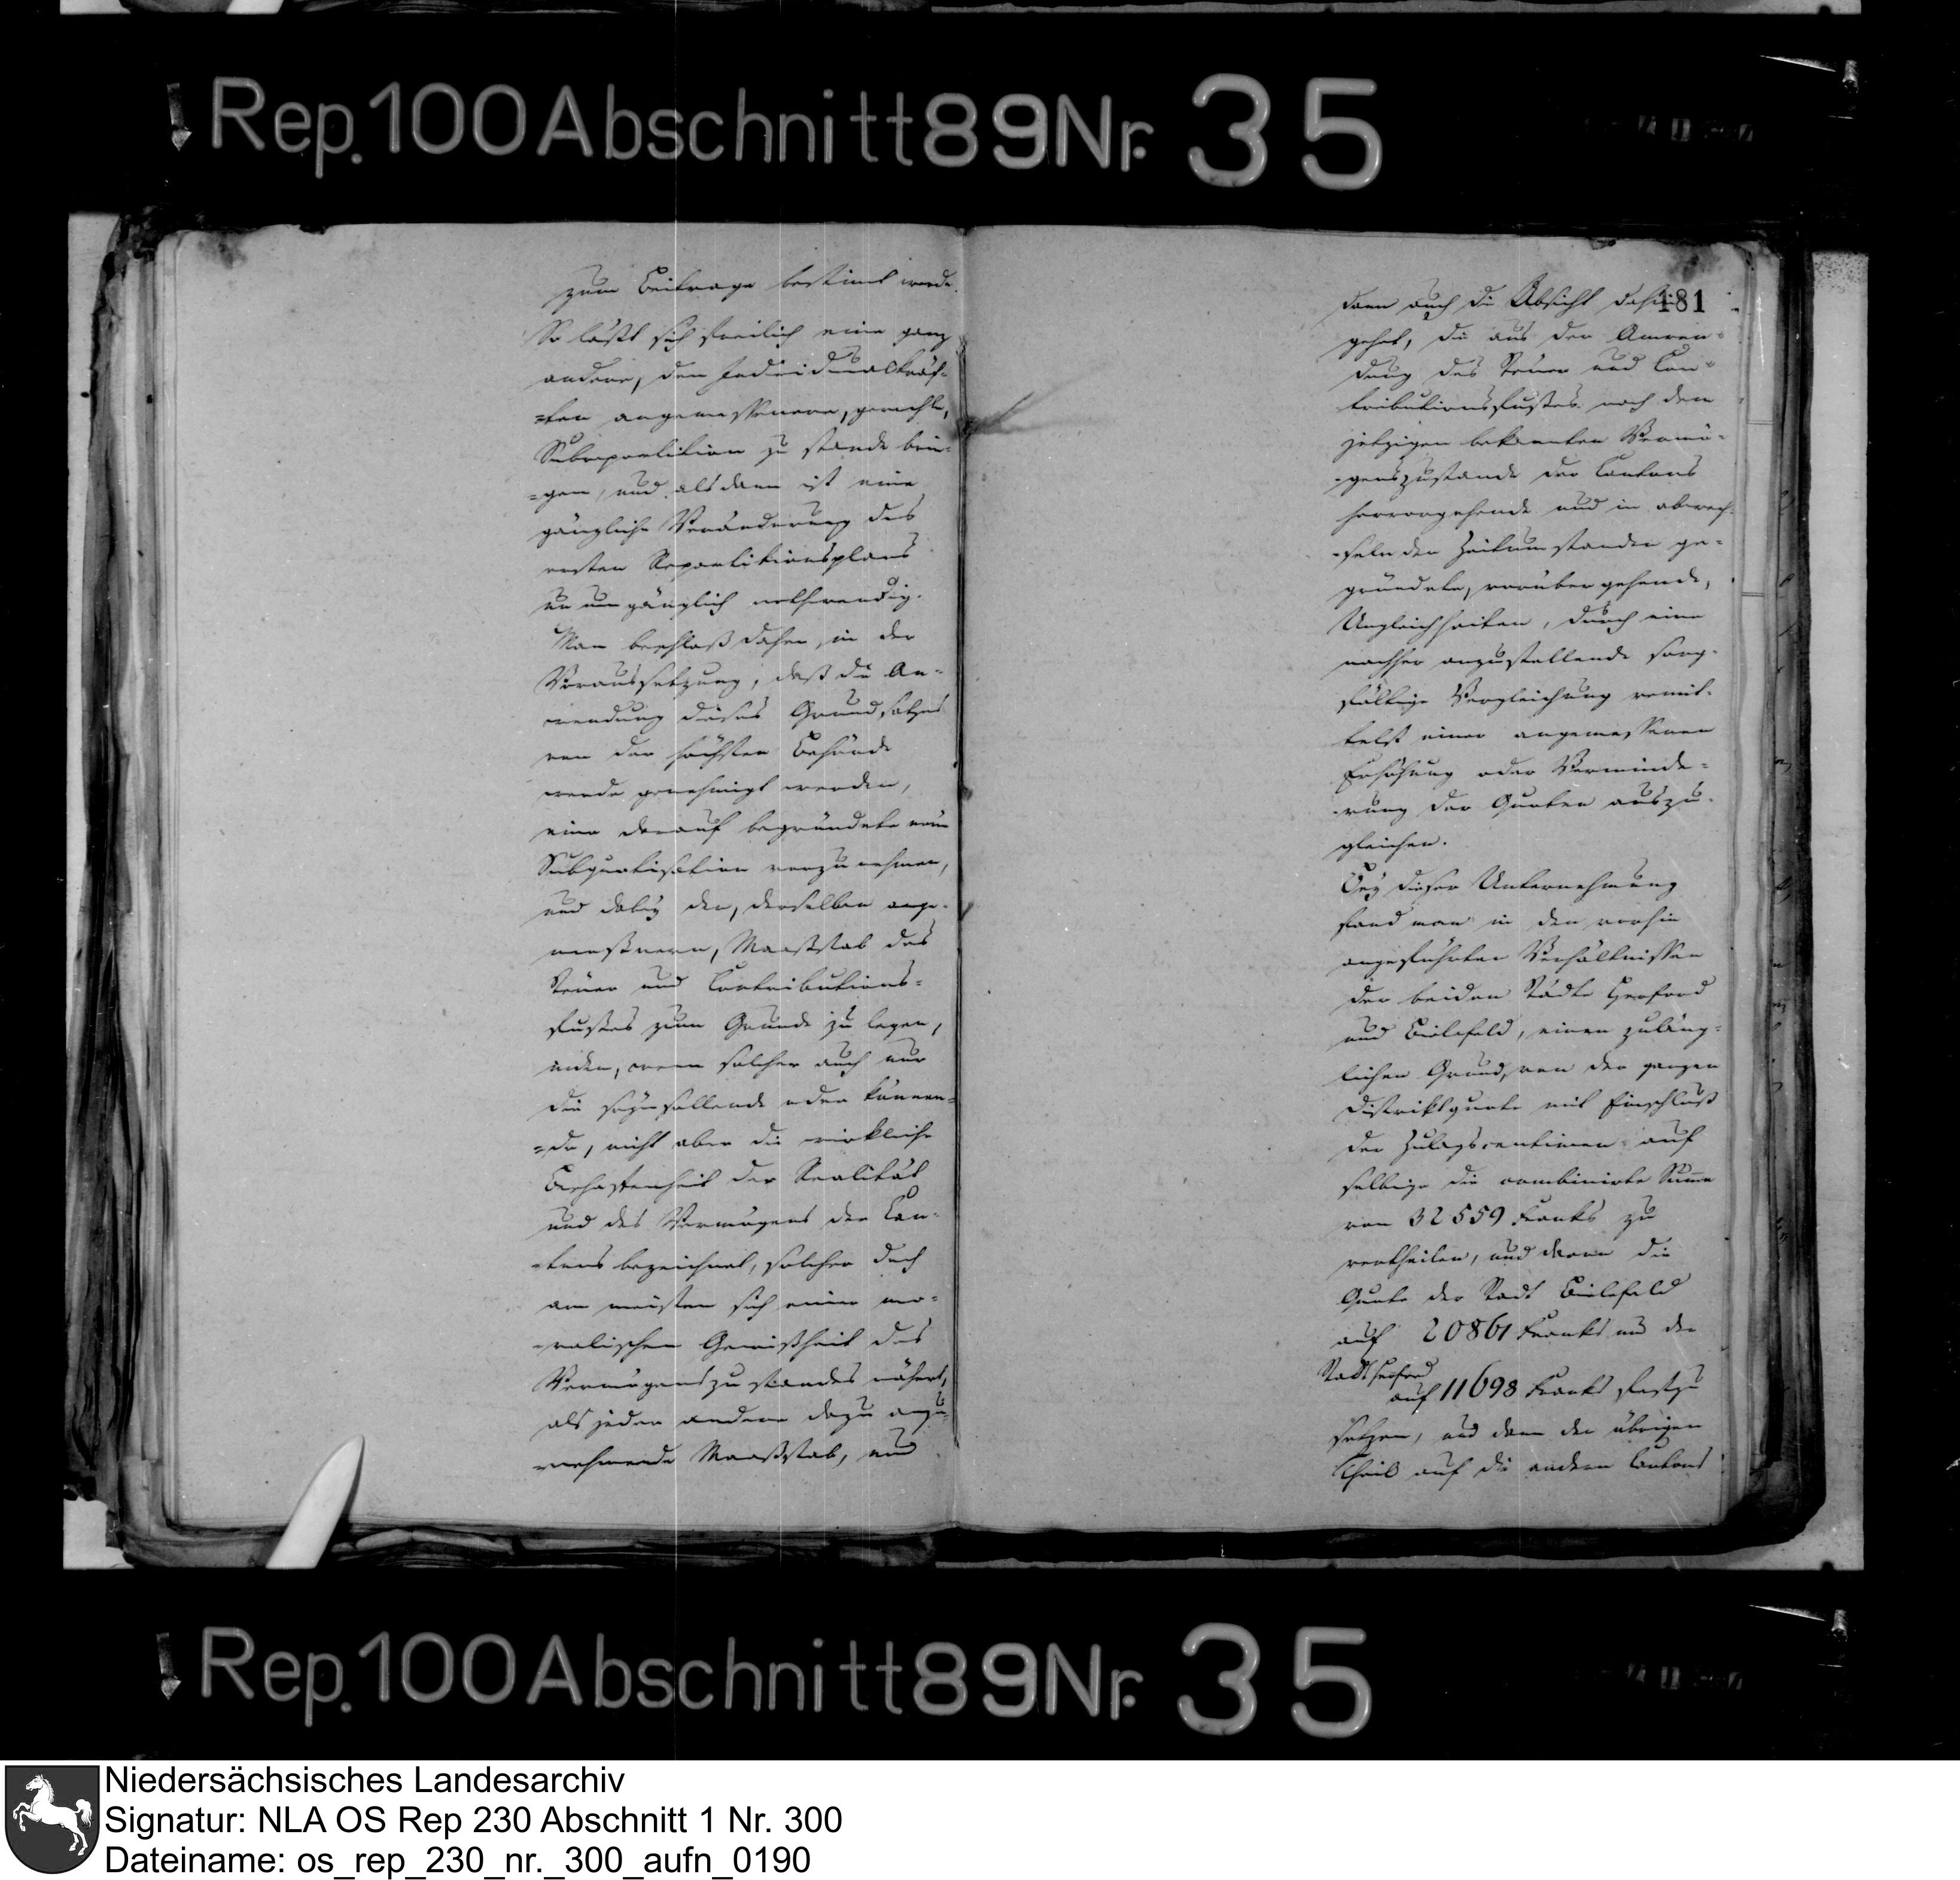 Rep. 100 Abschnitt 89 Nr. 35
zum Beitrage bestimt werde.
So läßt sich freilich eine ganz
andere, den Individualkräf-
=ten angemessenere, gerechte,
Subrepartition zu stande brin-
=gen, und alsdann ist eine
gänzliche Veränderung des
ersten Repartitionsplans
unumgänglich nothwendig.
Man beschloß daher, in der
Voraussetzung, daß die An-
wendung dieses Grundsatzes
von der höchsten Behörde
werde genehmigt werden,
eine darauf begründete neue
Subquotisation vorzunehmen,
und dabey den, derselben ange-
meßnern, Maaßstab des
Steuer und Contributions-
fußes zum Grunde zu legen,
indem, wenn solcher auch nur
die seyn sollende oder können-
=de, nicht aber die wirkliche
Beschaffenheit der Realität
und des Vermögens der Can-
=tons bezeichnet, solcher doch
am meisten sich einer mo-
=ralischen Gewißheit des
Vermögenszustandes nähert,
als jeder andere dazu anzu-
nehmende Maaßstab, und
181
dann auch die Absicht dahin
gehet, die aus der Anwen-
dung des Steuer und Con-
tributionsfußes nach dem
jetzigen bekannten Vermö-
=genszustande der Cantons
hervorgehende und in abwech-
=selnden Zeitumständen ge-
gründete, vorübergehende,
Ungleichheiten, durch eine
nachher anzustellende sorg-
fältige Vergleichung vermit-
telst einer angemessenen
Erhöhung oder Verminde-
=rung der Quoten auszu-
gleichen.
Bey dieser Unternehmung
fand man in den vorhin
angeführten Verhältnissen
der beiden Städte Herford
und Bielefeld, einen zuläng-
lichen Grund, von der ganzen
Distriktsquote mit Einschluß
der Zulagscentimen auf
selbige die combinirte Summe
von 32559 Franks zu
vertheilen, und davon die
Quote der Stadt Bielefeld
auf 20861 Franks und der
Stadt Herford
auf 11698 Franks festzu
setzen, und dann den übrigen
Theil auf die andern Cantons
Rep. 100 Abschnitt 89 Nr. 35
Niedersächsisches Landesarchiv
Signatur: NLA OS Rep 230 Abschnitt 1 Nr. 300
Dateiname: os_rep_230_nr._300_aufn_0190